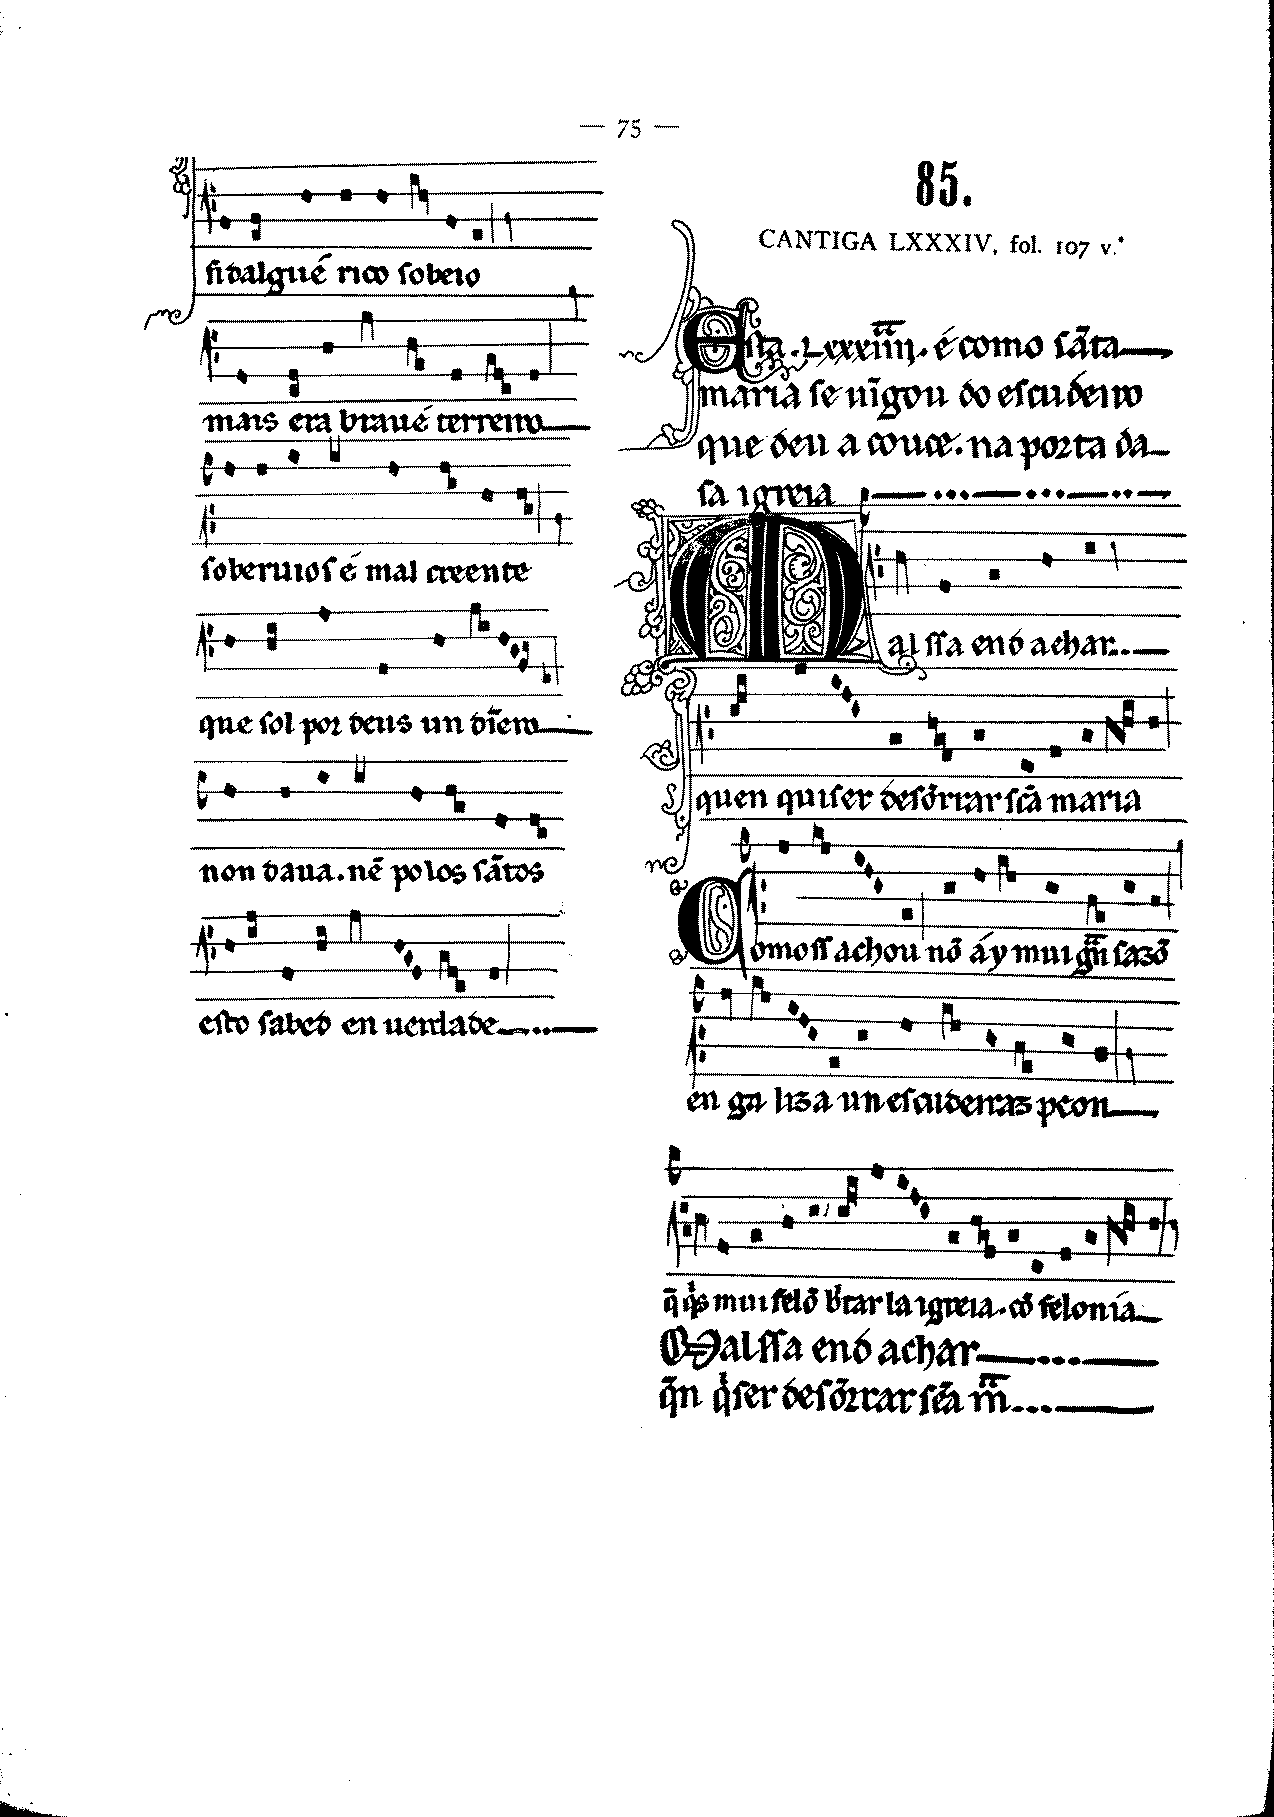 — 75 —
fidalgu é rico sobeio
mais era brau é terreiro
soberuios é mal creente
que sol por deus un dieiro
non daua. nẽ polos sãtos
esto sabed en uerdade
85.
CANTIGA LXXXIV, fol. 107 v.º
Esta .Lxxxiiij. é como sãta
maria se uĩgou do escudeiro
que deu a couce. na porta da
sa igreia
Mal ssa end achar
quen quiser desõrrar scã maria
Como ss achou nõ áy mui grã sazõ
en galiza un escudeiraz peon
q̃ q̇s mui felõ b̃tar la igreia. cõ felonia
Mal ssa end achar
q̃n q̇ser desõrrar scã m̃